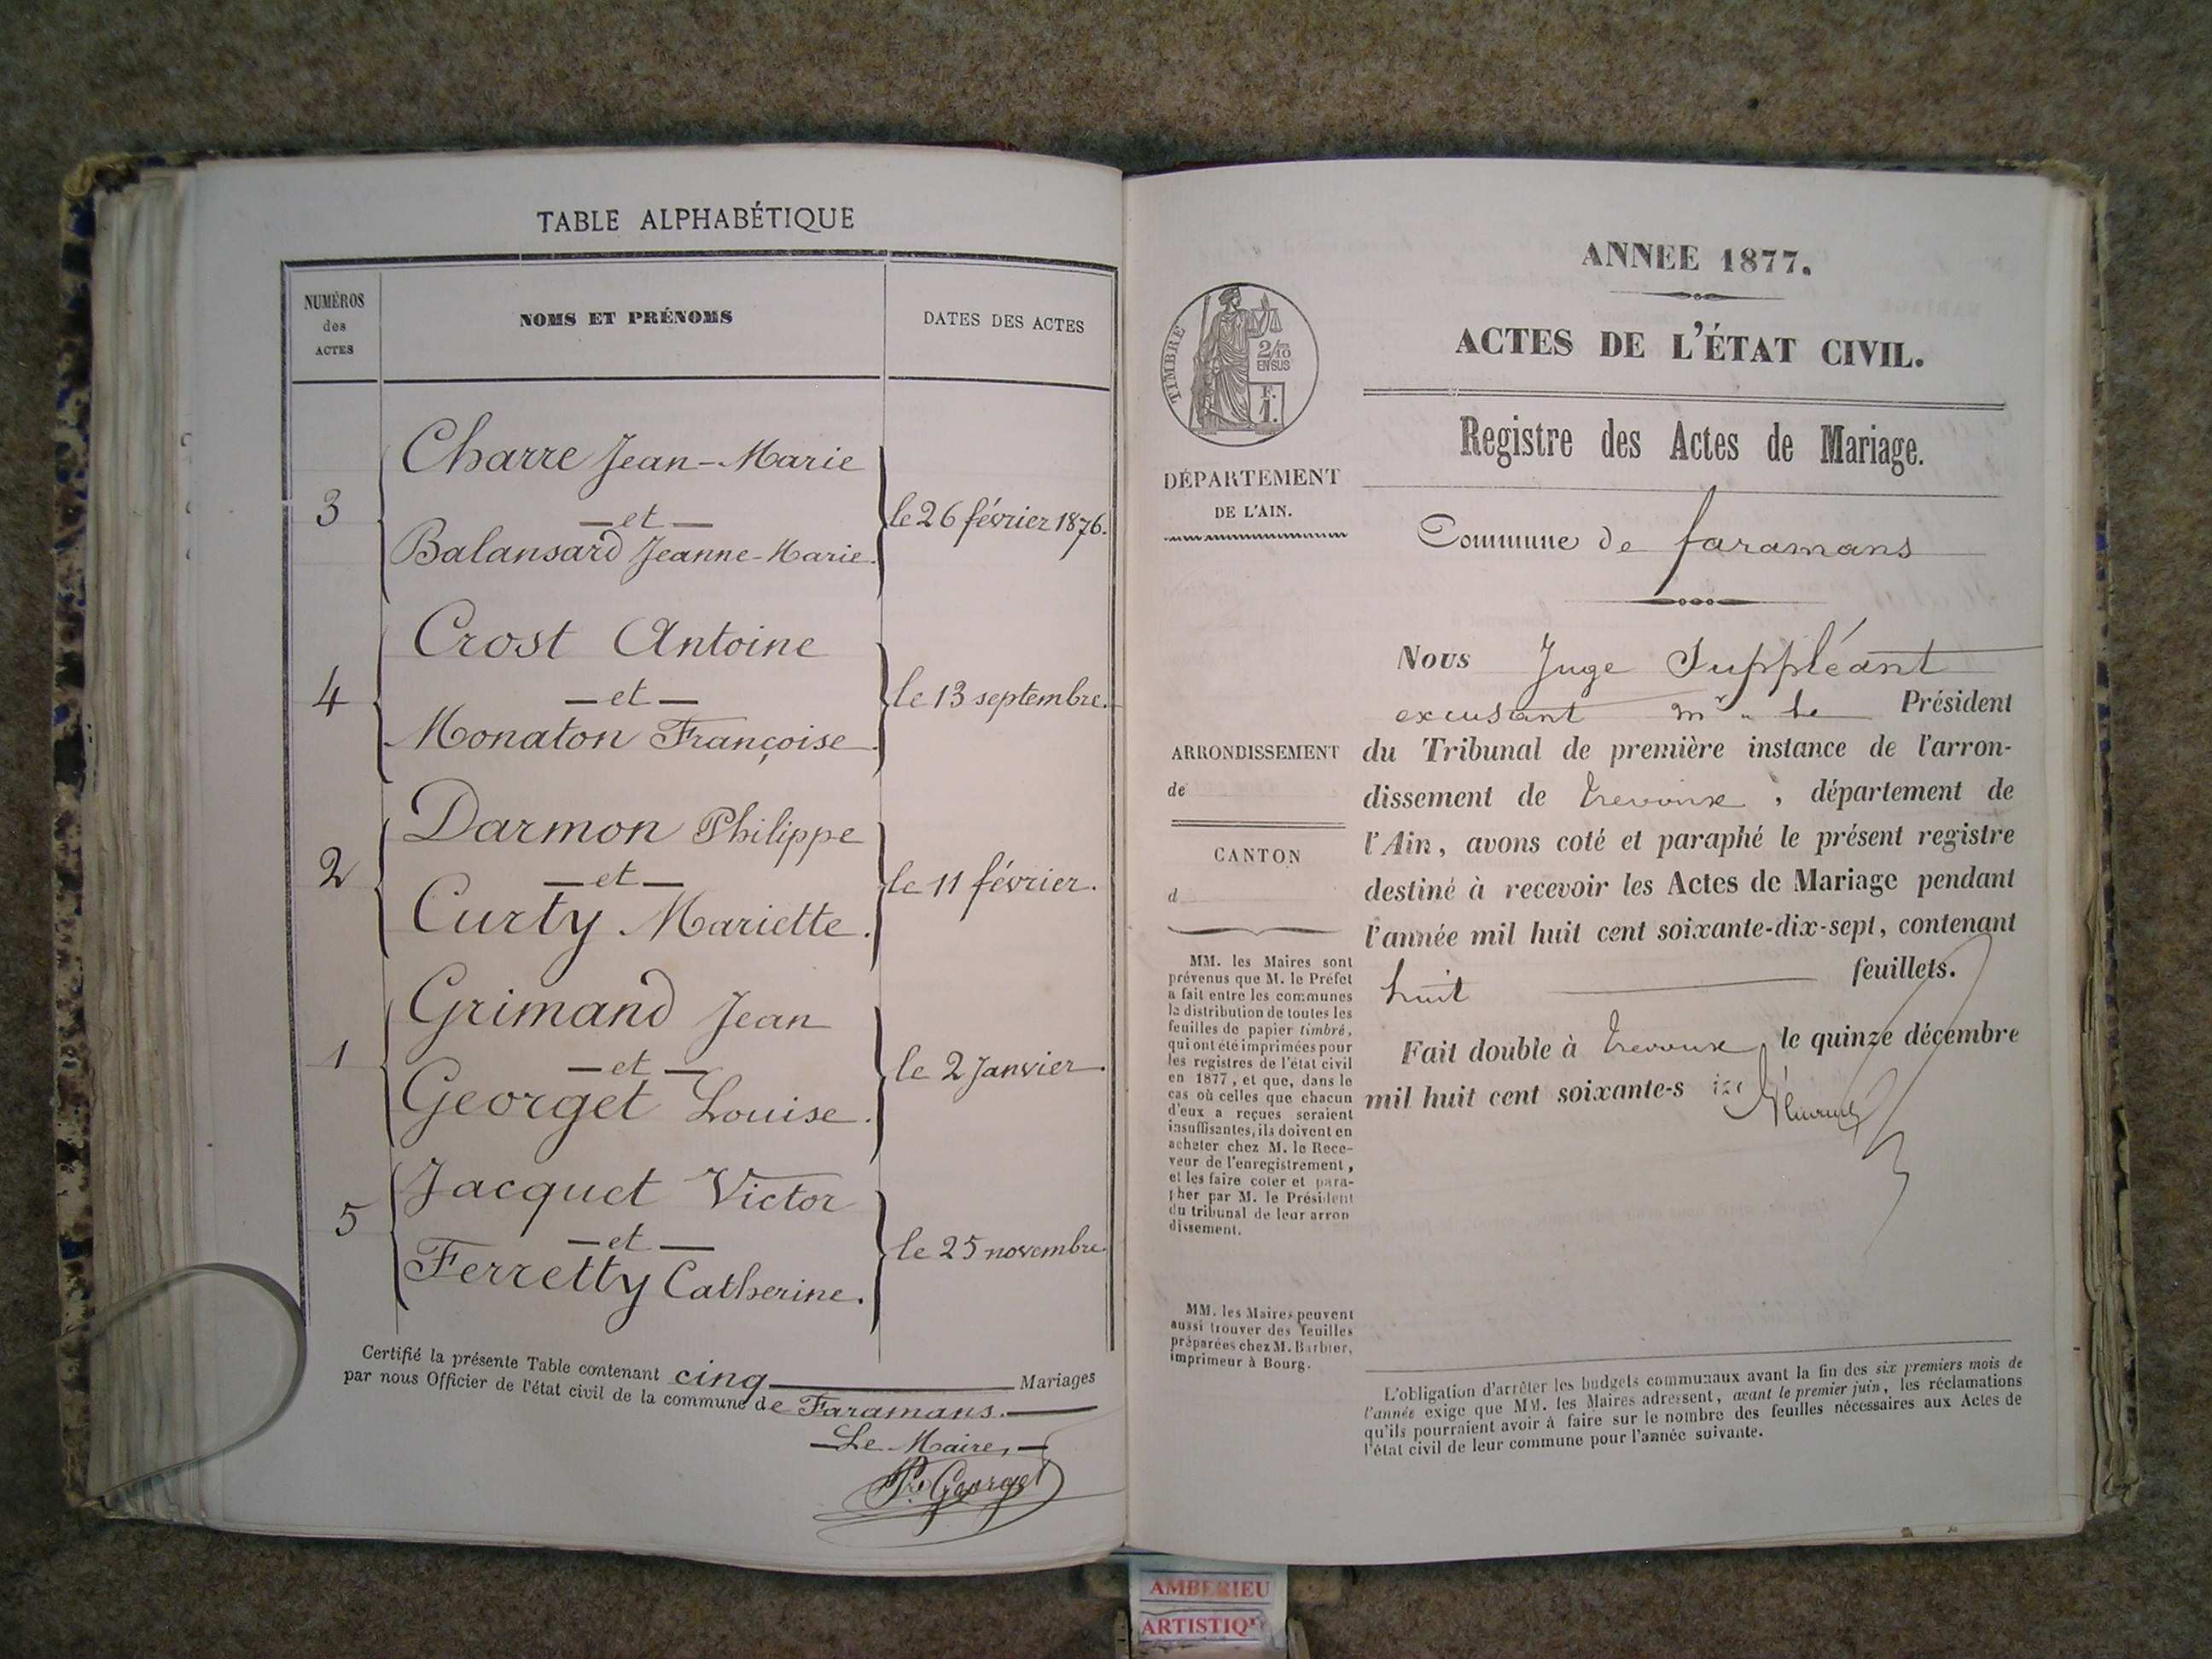 TABLE ALPHABÉTIQUE
NUMÉROS
des
ACTES
NOMS ET PRÉNOMS
DATES DES ACTES
Charre Jean-Marie
3
— et —
le 26 février 1876.
Balansard Jeanne-Marie.
Crost Antoine
4
— et —
le 13 septembre.
Monaton Françoise.
Darmon Philippe
2
— et —
le 11 février.
Curty Mariette.
Grimand Jean
1
— et —
le 2 Janvier.
Georget Louise.
Jacquet Victor
5
— et —
le 25 novembre.
Ferretty Catherine.
Certifié la présente Table contenant cinq Mariages
par nous Officier de l'état civil de la commune de Faramans.
Le Maire,
Georget
ANNEE 1877.
ACTES DE L'ÉTAT CIVIL.
TIMBRE
2/10
EN SUS
F.
1.
Registre des Actes de Mariage.
DÉPARTEMENT
DE L'AIN.
Commune de faramans
Nous Juge Suppléant
excusant mr le Président
ARRONDISSEMENT
de
CANTON
d
du Tribunal de première instance de l'arron-
dissement de Trevoux, département de
l'Ain, avons coté et paraphé le présent registre
destiné à recevoir les Actes de Mariage pendant
l'année mil huit cent soixante-dix-sept, contenant
huit feuillets.
Fait double à Trevoux, le quinze décembre
mil huit cent soixante-s ize
MM. les Maires sont
prévenus que M. le Préfet
a fait entre les communes
la distribution de toutes les
feuilles de papier timbré,
qui ont été imprimées pour
les registres de l'état civil
en 1877, et que, dans le
cas où celles que chacun
d'eux a reçues seraient
insuffisantes, ils doivent en
acheter chez M. le Rece-
veur de l'enregistrement,
et les faire coter et para-
pher par M. le Président
du tribunal de leur arron
dissement.
MM. les Maires peuvent
aussi trouver des feuilles
préparées chez M. Barbier,
imprimeur à Bourg.
L'obligation d'arrêter les budgets communaux avant la fin des six premiers mois de
l'année exige que MM. les Maires adressent, avant le premier juin, les réclamations
qu'ils pourraient avoir à faire sur le nombre des feuilles nécessaires aux Actes de
l'état civil de leur commune pour l'année suivante.
AMBERIEU
ARTISTIQU